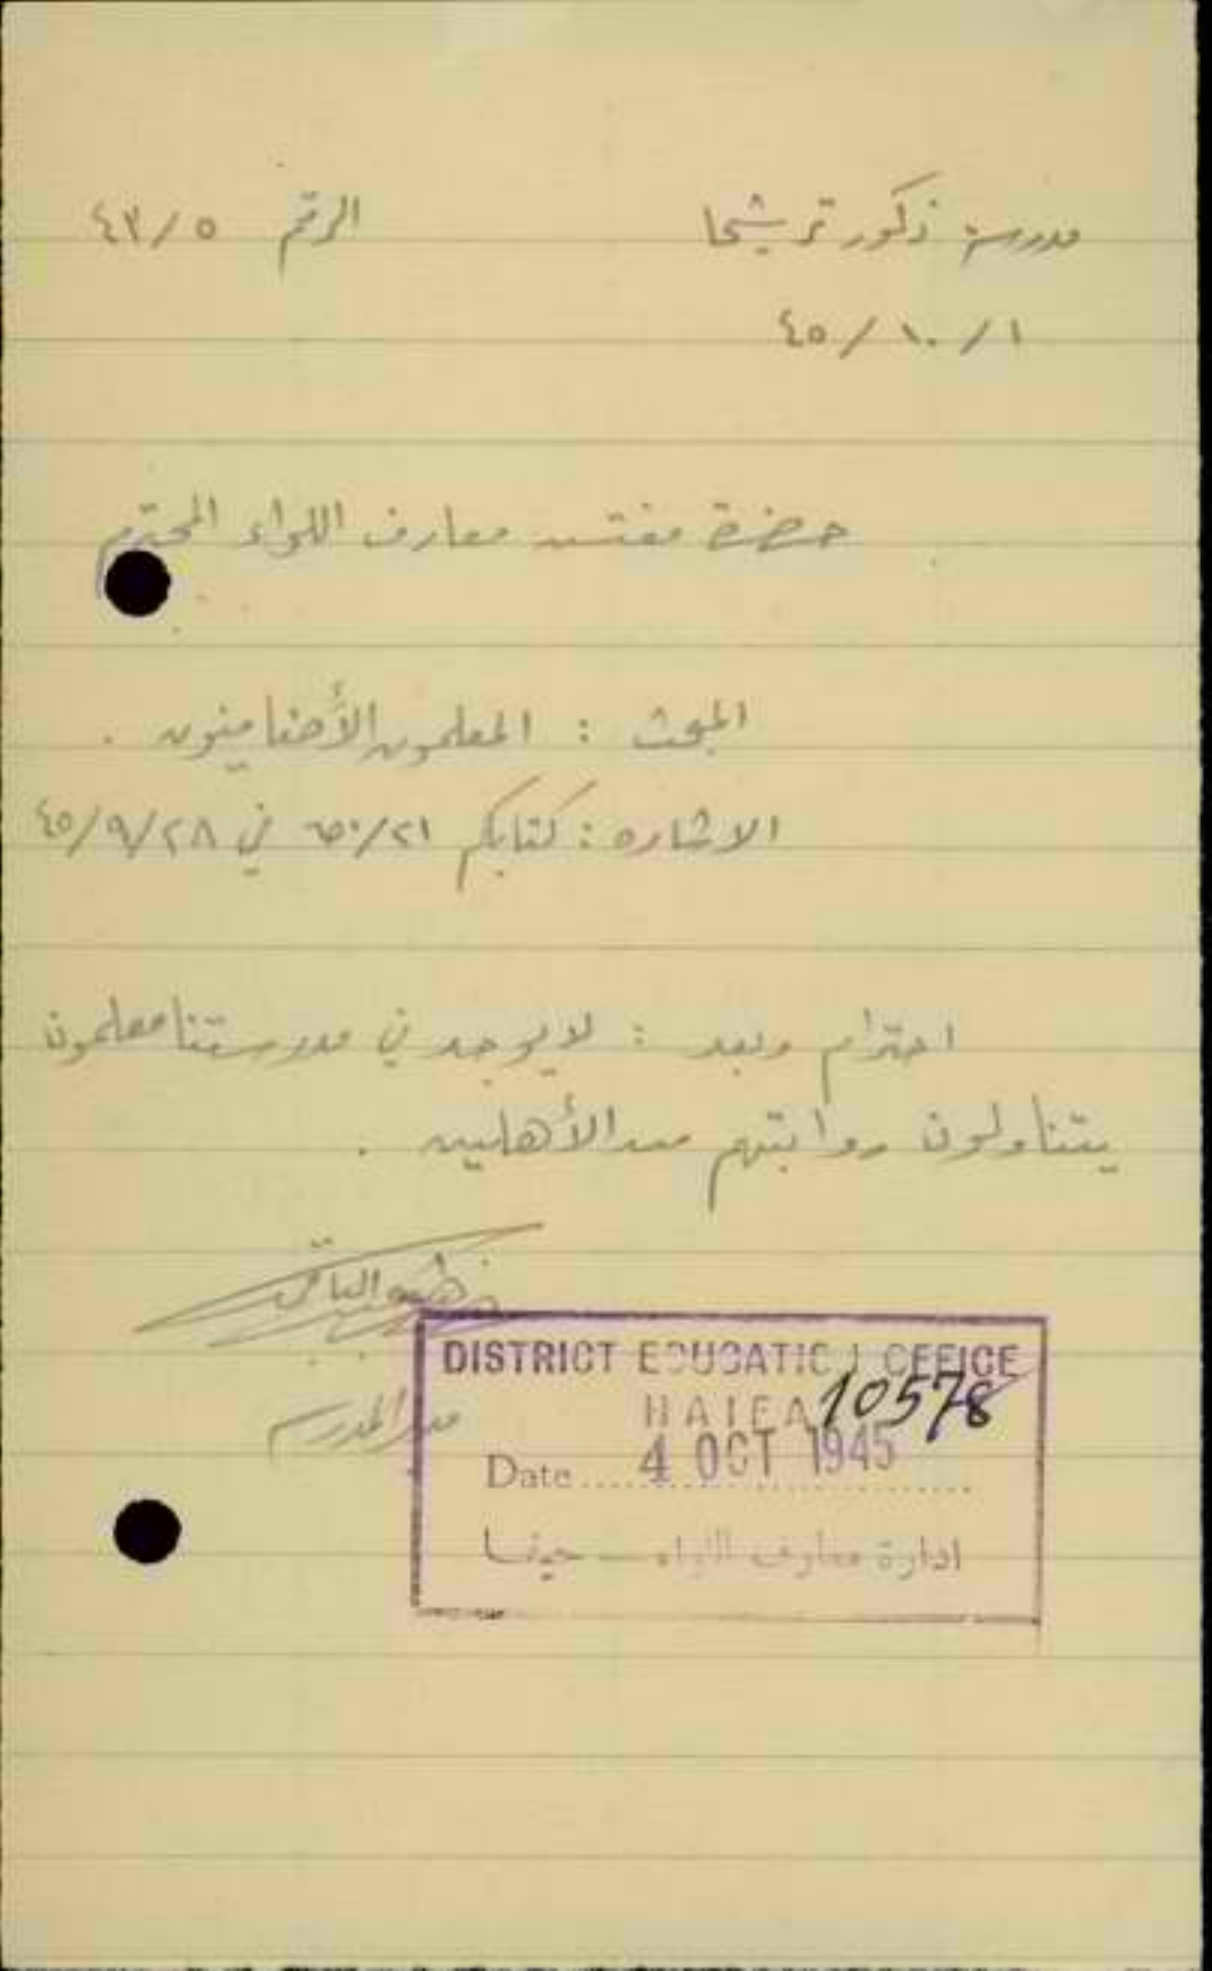 مدرسة ذكور ترشيحا
الرقم ٤٣/٥
٤٥/١٠/١
حضرة مفتش معارف اللواء المحترم
المبحث : المعلمون الأضافيون .
الاشاره : كتابكم ٢١/ في ٤٥/٩/٢٨
احترام وبعد : لا يوجد في مدرستنا معلمون
يتناولون رواتبهم من الأهليين .
مدير المدرسة
DISTRICT EDUCATION OFFICE
HAIFA 10578
Date 4 OCT 1945
ادارة معارف اللواء – حيفا